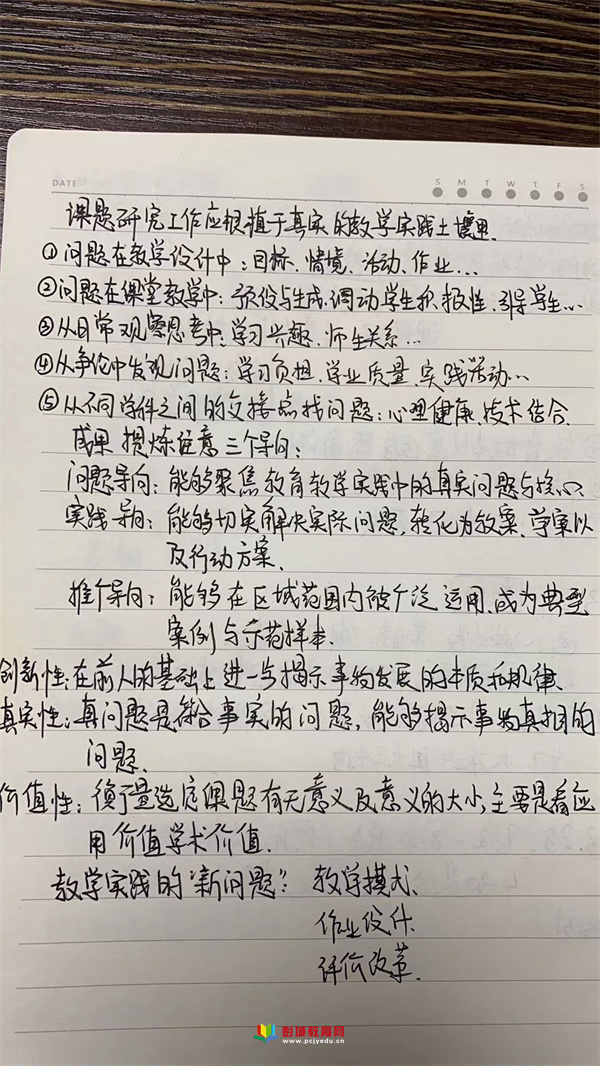 DATE
S M T W T F S
课题研究工作应根植于真实的教学实践土壤里.
①问题在教学设计中:目标、情境、活动、作业…
②问题在课堂教学中:预设与生成,调动学生积极性、引导学生…
③从日常观察思考中:学习兴趣、师生关系…
④从争论中发现问题:学习负担、学业质量、实践活动…
⑤从不同学科之间的交接点找问题:心理健康、技术结合.
成果提炼注意三个导向:
问题导向:能够聚焦教育教学实践中的真实问题与核心.
实践导向:能够切实解决实际问题,转化为教案、学案以
及行动方案.
推介导向:能够在区域范围内被广泛运用,成为典型
案例与示范样本.
创新性:在前人的基础上进一步揭示事物发展的本质和规律.
真实性:真问题是符合事实的问题,能够揭示事物真相的
问题.
价值性:衡量选定课题有无意义及意义的大小,主要是看应
用价值学术价值.
教学实践的“新问题”:教学模式.
作业设计.
评价改革.
彭城教育网
www.pcjyedu.cn